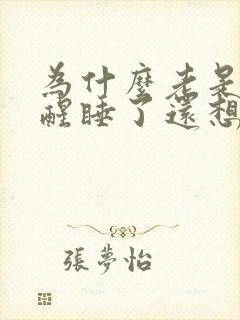 為什麼老是
醒睡了還想
張夢怡